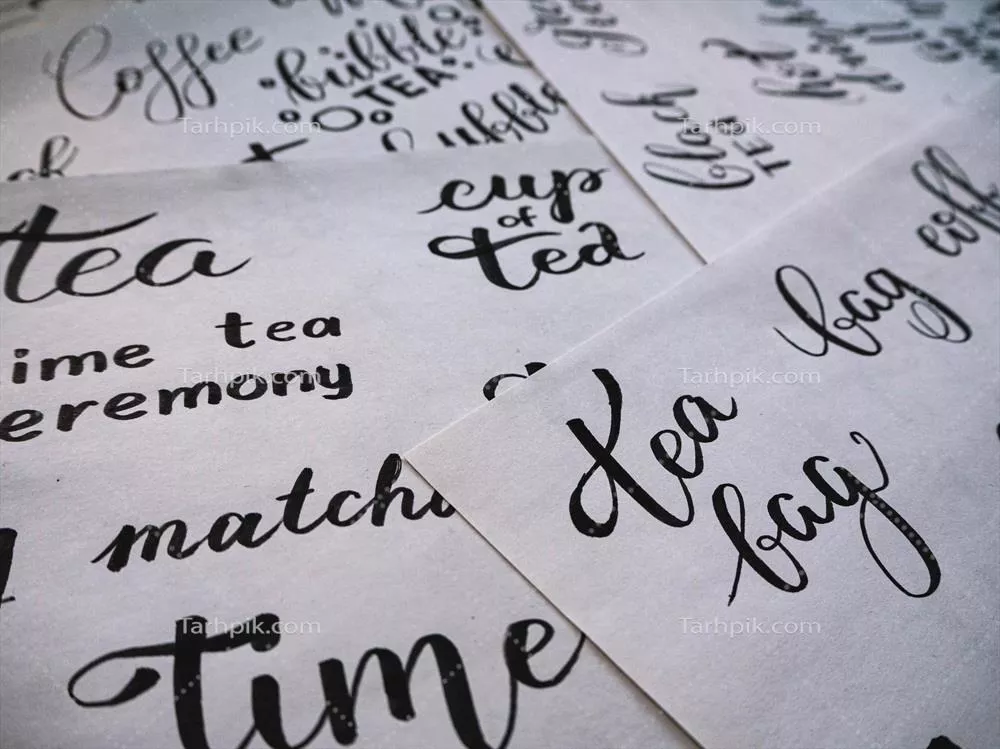 Coffee
bubble
TEA
bubble
black
TEA
tea
cup
of
tea
ime tea
eremony
matcha
Time
bag
tea
bag
Tarhpik.com
Tarhpik.com
Tarhpik.com
Tarhpik.com
Tarhpik.com
Tarhpik.com